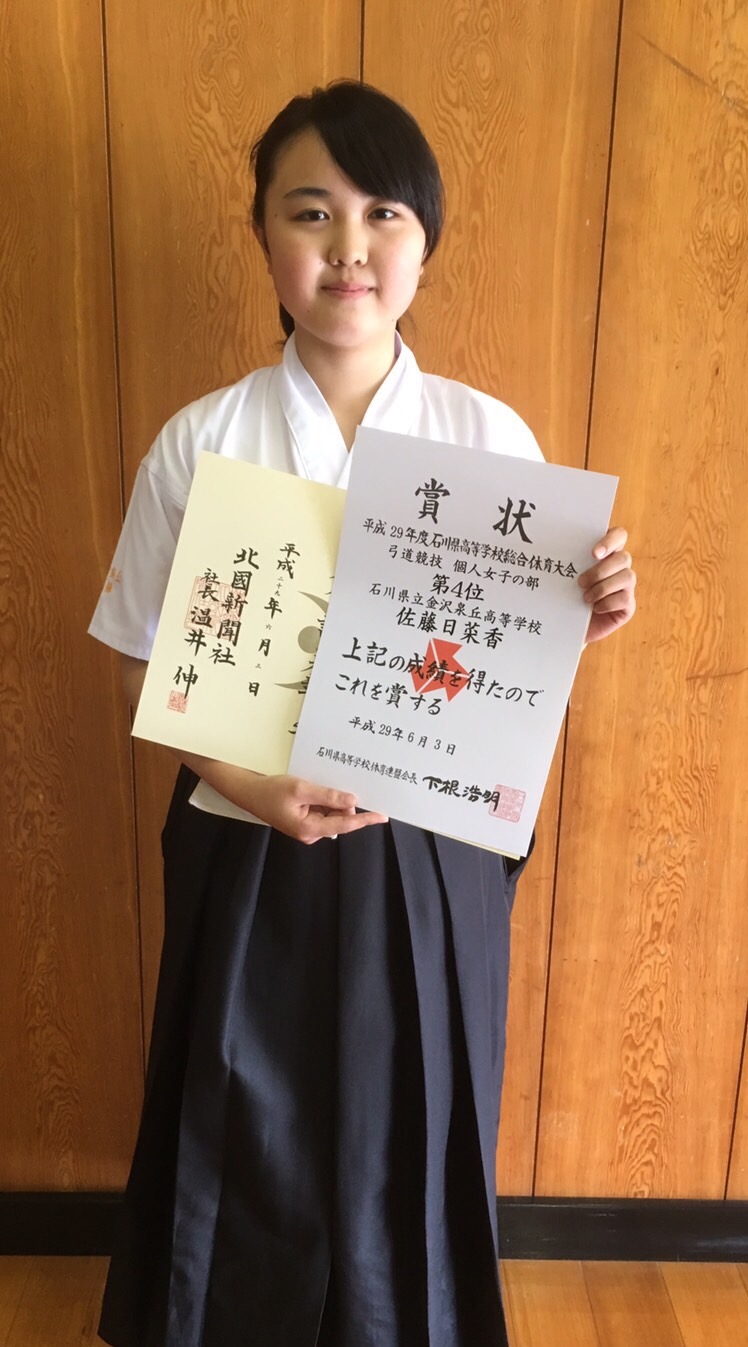 賞状
平成29年度石川県高等学校総合体育大会
弓道競技 個人女子の部
第4位
石川県立金沢泉丘高等学校
佐藤日菜香
上記の成績を得たので
これを賞する
平成29年6月3日
石川県高等学校体育連盟会長 下根浩明
平成二十九年六月三日
北國新聞社
社長温井伸